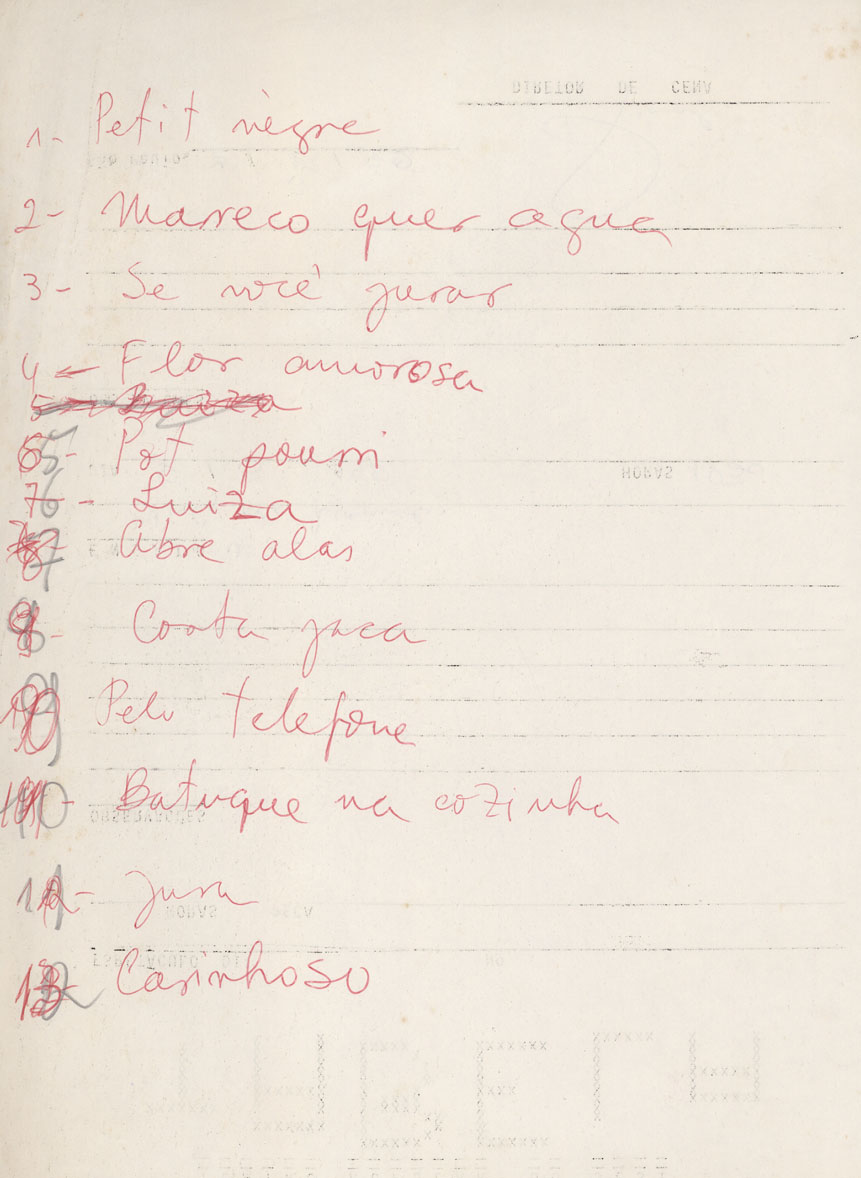 1- Petit nègre
2- Marreco quer agua
3- Se você jurar
4 - Flor amorosa
5 - Luiza
5- Pot pourri
6 - Luiza
7 Abre alas
8 - Corta jaca
9 Pelo telefone
10 - Batuque na cozinha
11 - Jura
12 - Carinhoso